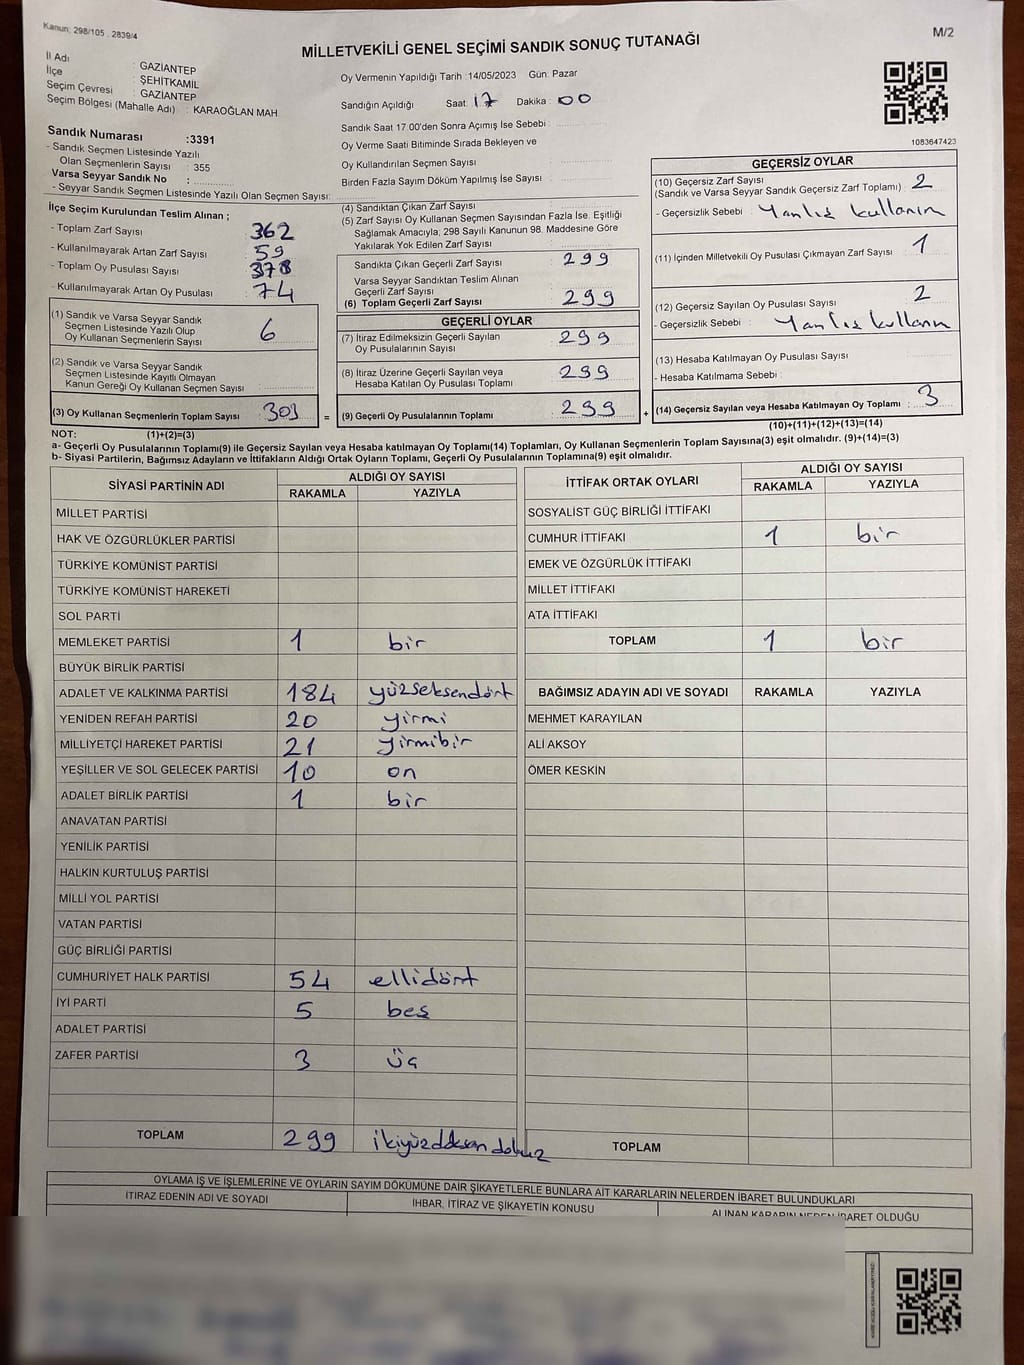 Kanun: 298/105 , 2839/4
M/2
MİLLETVEKİLİ GENEL SEÇİMİ SANDIK SONUÇ TUTANAĞI
İl Adı : GAZİANTEP
İlçe : ŞEHİTKAMİL
Seçim Çevresi : GAZİANTEP
Seçim Bölgesi (Mahalle Adı) : KARAOĞLAN MAH
Sandık Numarası :3391
- Sandık Seçmen Listesinde Yazılı
Olan Seçmenlerin Sayısı : 355
Varsa Seyyar Sandık No :
- Seyyar Sandık Seçmen Listesinde Yazılı Olan Seçmen Sayısı:
Oy Vermenin Yapıldığı Tarih :14/05/2023 Gün: Pazar
Sandığın Açıldığı Saat: 17 Dakika : 00
Sandık Saat 17.00'den Sonra Açımış İse Sebebi :
Oy Verme Saati Bitiminde Sırada Bekleyen ve
Oy Kullandırılan Seçmen Sayısı :
Birden Fazla Sayım Döküm Yapılmış İse Sayısı :
1083647423
İlçe Seçim Kurulundan Teslim Alınan ;
- Toplam Zarf Sayısı : 362
- Kullanılmayarak Artan Zarf Sayısı : 59
- Toplam Oy Pusulası Sayısı : 378
- Kullanılmayarak Artan Oy Pusulası : 74
(1) Sandık ve Varsa Seyyar Sandık
Seçmen Listesinde Yazılı Olup
Oy Kullanan Seçmenlerin Sayısı : 6
(2) Sandık ve Varsa Seyyar Sandık
Seçmen Listesinde Kayıtlı Olmayan
Kanun Gereği Oy Kullanan Seçmen Sayısı :
(3) Oy Kullanan Seçmenlerin Toplam Sayısı : 303 =
(4) Sandıktan Çıkan Zarf Sayısı :
(5) Zarf Sayısı Oy Kullanan Seçmen Sayısından Fazla İse. Eşitliği
Sağlamak Amacıyla, 298 Sayılı Kanunun 98. Maddesine Göre
Yakılarak Yok Edilen Zarf Sayısı :
Sandıkta Çıkan Geçerli Zarf Sayısı : 299
Varsa Seyyar Sandıktan Teslim Alınan
Geçerli Zarf Sayısı :
(6) Toplam Geçerli Zarf Sayısı : 299
GEÇERLİ OYLAR
(7) İtiraz Edilmeksizin Geçerli Sayılan
Oy Pusulalarının Sayısı : 299
(8) İtiraz Üzerine Geçerli Sayılan veya
Hesaba Katılan Oy Pusulası Toplamı : 299
(9) Geçerli Oy Pusulalarının Toplamı : 299 +
GEÇERSİZ OYLAR
(10) Geçersiz Zarf Sayısı
(Sandık ve Varsa Seyyar Sandık Geçersiz Zarf Toplamı) : 2
- Geçersizlik Sebebi : Yanlış kullanım
(11) İçinden Milletvekili Oy Pusulası Çıkmayan Zarf Sayısı : 1
(12) Geçersiz Sayılan Oy Pusulası Sayısı : 2
- Geçersizlik Sebebi : Yanlış kullanım
(13) Hesaba Katılmayan Oy Pusulası Sayısı :
- Hesaba Katılmama Sebebi :
(14) Geçersiz Sayılan veya Hesaba Katılmayan Oy Toplamı : 3
NOT: (1)+(2)=(3)
(10)+(11)+(12)+(13)=(14)
a- Geçerli Oy Pusulalarının Toplamı(9) ile Geçersiz Sayılan veya Hesaba katılmayan Oy Toplamı(14) Toplamları, Oy Kullanan Seçmenlerin Toplam Sayısına(3) eşit olmalıdır. (9)+(14)=(3)
b- Siyasi Partilerin, Bağımsız Adayların ve İttifakların Aldığı Ortak Oyların Toplamı, Geçerli Oy Pusulalarının Toplamına(9) eşit olmalıdır.
SİYASİ PARTİNİN ADI ALDIĞI OY SAYISI
RAKAMLA YAZIYLA
MİLLET PARTİSİ
HAK VE ÖZGÜRLÜKLER PARTİSİ
TÜRKİYE KOMÜNİST PARTİSİ
TÜRKİYE KOMÜNİST HAREKETİ
SOL PARTİ
MEMLEKET PARTİSİ 1 bir
BÜYÜK BİRLİK PARTİSİ
ADALET VE KALKINMA PARTİSİ 184 yüzseksendört
YENİDEN REFAH PARTİSİ 20 yirmi
MİLLİYETÇİ HAREKET PARTİSİ 21 yirmibir
YEŞİLLER VE SOL GELECEK PARTİSİ 10 on
ADALET BİRLİK PARTİSİ 1 bir
ANAVATAN PARTİSİ
YENİLİK PARTİSİ
HALKIN KURTULUŞ PARTİSİ
MİLLİ YOL PARTİSİ
VATAN PARTİSİ
GÜÇ BİRLİĞİ PARTİSİ
CUMHURİYET HALK PARTİSİ 54 ellidört
İYİ PARTİ 5 beş
ADALET PARTİSİ
ZAFER PARTİSİ 3 üç
TOPLAM 299 ikiyüzdoksan dokuz
İTTİFAK ORTAK OYLARI ALDIĞI OY SAYISI
RAKAMLA YAZIYLA
SOSYALİST GÜÇ BİRLİĞİ İTTİFAKI
CUMHUR İTTİFAKI 1 bir
EMEK VE ÖZGÜRLÜK İTTİFAKI
MİLLET İTTİFAKI
ATA İTTİFAKI
TOPLAM 1 bir
BAĞIMSIZ ADAYIN ADI VE SOYADI RAKAMLA YAZIYLA
MEHMET KARAYILAN
ALİ AKSOY
ÖMER KESKİN
TOPLAM
OYLAMA İŞ VE İŞLEMLERİNE VE OYLARIN SAYIM DÖKÜMÜNE DAİR ŞİKAYETLERLE BUNLARA AİT KARARLARIN NELERDEN İBARET BULUNDUKLARI
İTİRAZ EDENİN ADI VE SOYADI İHBAR, İTİRAZ VE ŞİKAYETİN KONUSU ALINAN KARARIN NEDEN İBARET OLDUĞU